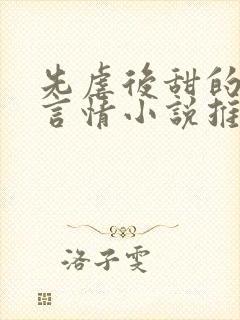 先虐後甜的
言情小說推
洛子雯